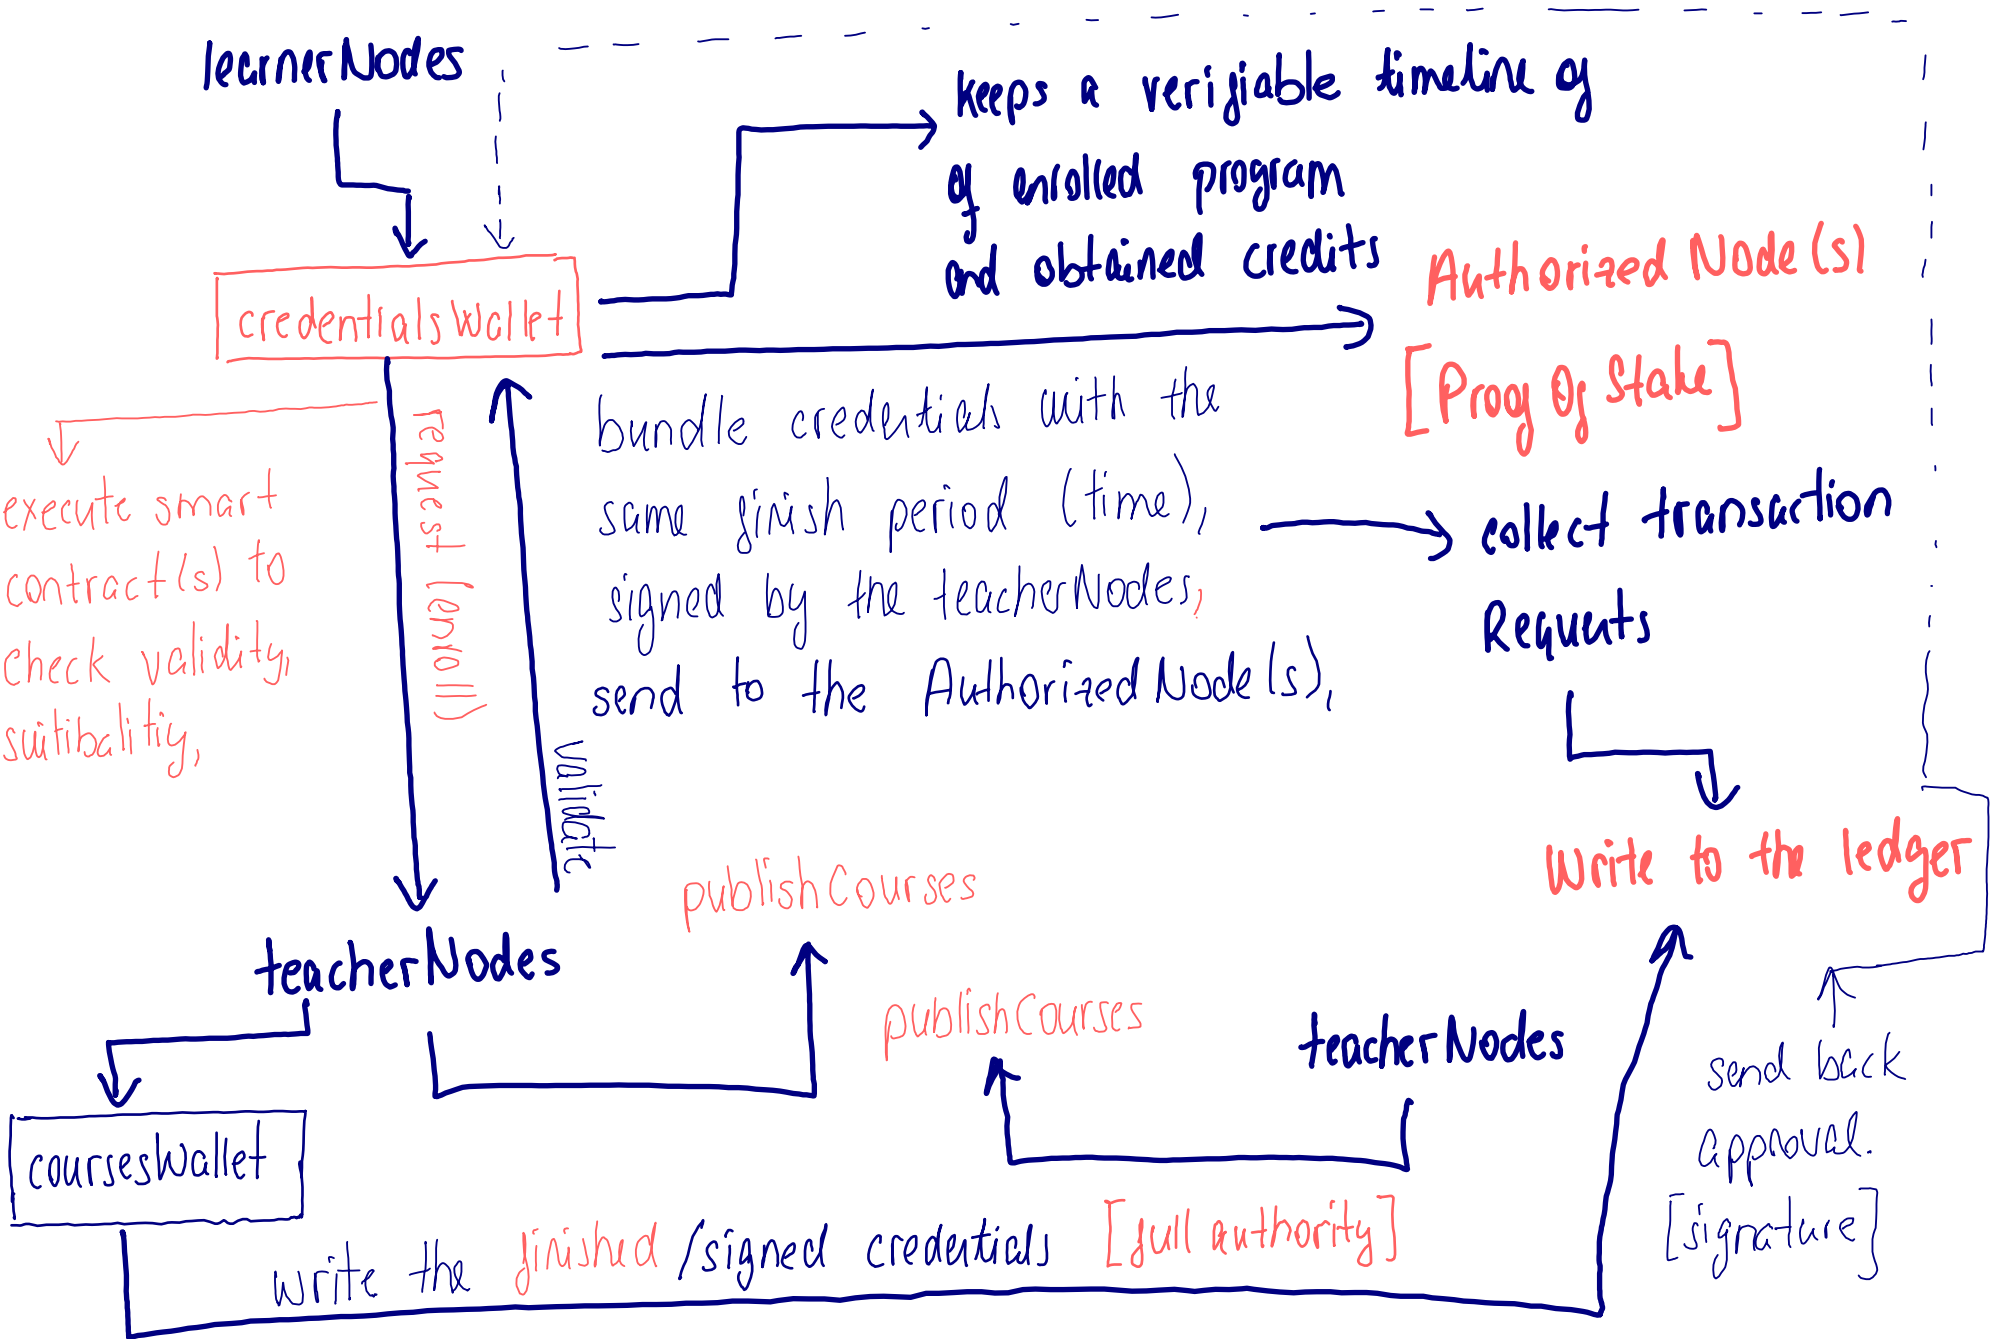 learnerNodes
keeps a verifiable timeline of
of enrolled program
and obtained credits
credentialsWallet
Authorized Node(s)
[Proof Of Stake]
request (enroll)
execute smart
contract(s) to
check validity,
suitibalitiy,
validate
bundle credentials with the
same finish period (time),
signed by the teacherNodes,
send to the AuthorizedNode(s),
collect transaction
Requests
Write to the ledger
publishCourses
teacherNodes
publishCourses
teacherNodes
send back
approval.
[signature]
coursesWallet
write the finished/signed credentials [full authority]